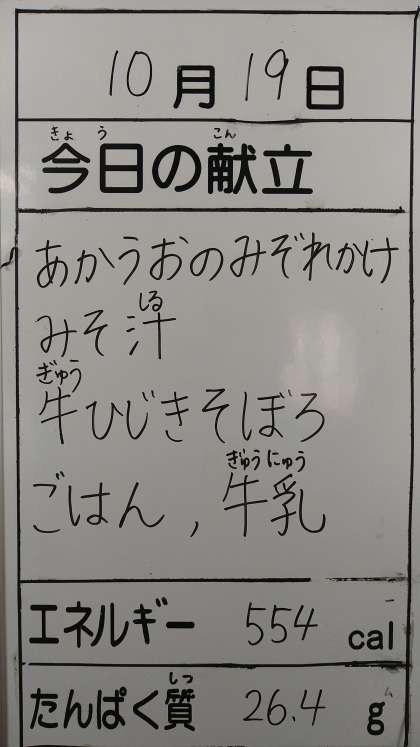 10月19日
きょう こん
今日の献立
あかうおのみぞれかけ
しる
みそ汁
ぎゅう
牛ひじきそぼろ
ぎゅうにゅう
ごはん,牛乳
エネルギー 554 cal
しつ
たんぱく質 26.4 g